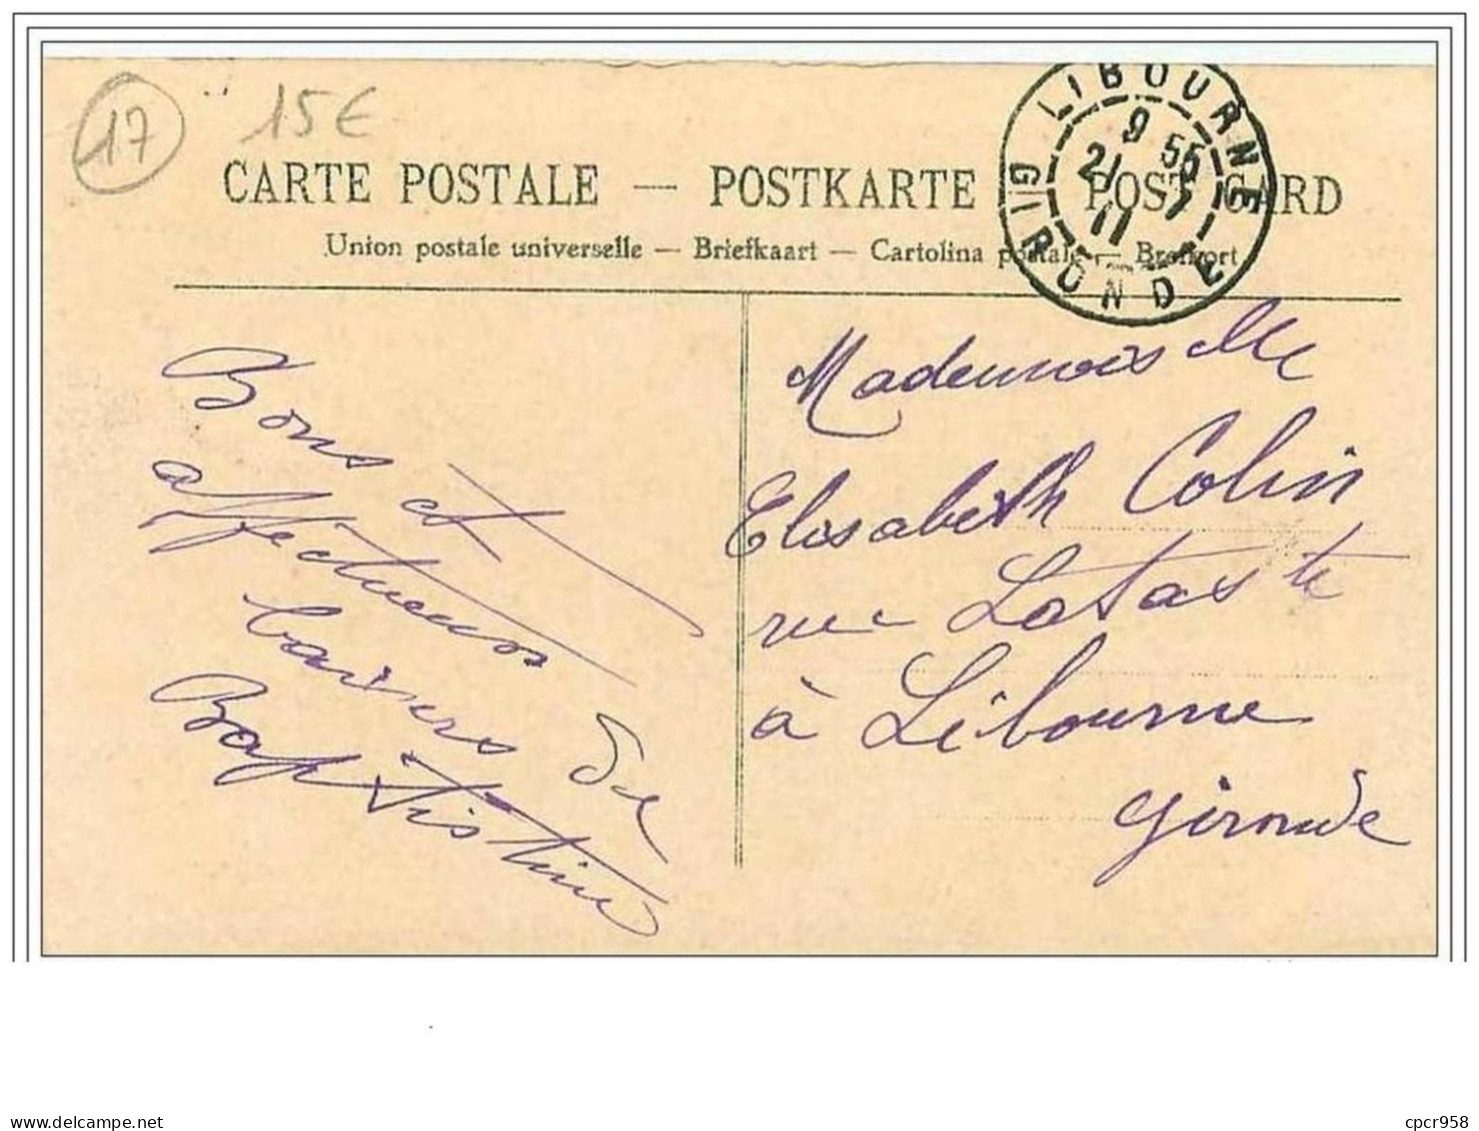 17
15€
CARTE POSTALE — POSTKARTE — POST CARD
Union postale universelle — Briefkaart — Cartolina postale — Brefkort
LIBOURNE
9 55
21 7
11
GIRONDE
Bons et
affectueux
baisers de
Baptistine
Mademoiselle
Elisabeth Colin
rue Lataste
à Libourne
Gironde
delcampe.net
cpcr958